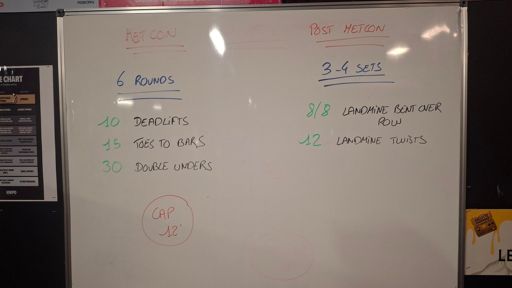 METCON
6 ROUNDS
10 DEADLIFTS
15 TOES TO BARS
30 DOUBLE UNDERS
CAP
12'
POST METCON
3-4 SETS
8/8 LANDMINE BENT OVER
ROW
12 LANDMINE TWISTS
E CHART
LE